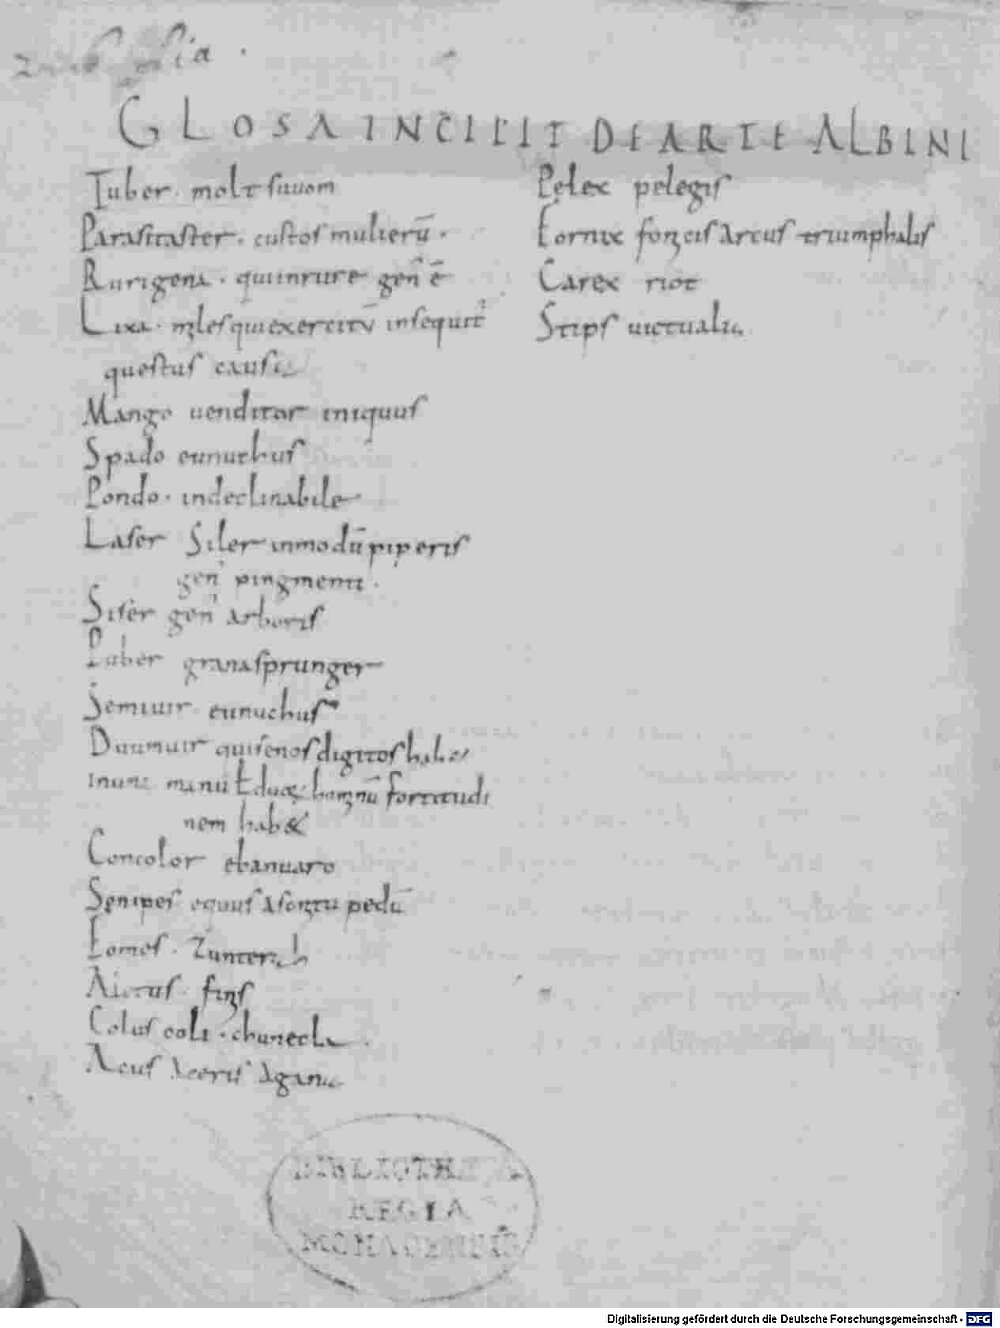 GLOSA INCIPIT DE ARTE ALBINI
Tuber. molt suuom
Parasitaster. custos mulierū.
Rurigena. qui in rure geñ ē
Lixa. miles qui exercitū insequit̄
questus causa
Mango uenditor iniquus
Spado eunuchus
Pondo. indeclinabile
Laser Siler in modū piperis
geñ pingmenti.
Siser geñ arboris
Puber granasprunger
Semiuir eunuchus
Duumuir qui senos digitos habet
in una manu ł duorū hominū fortitudi
nem hab&
Concolor ebanuaro
Senipes equus asonitu pedū
Fomes. Zunter
Artus. fizs
Colus coli. chunecla
Acus aceris agana
Pelex pelegis
Fornix fornicis arcus triumphalis
Carex riot
Stips uictualia
BIBLIOTHECA
REGIA
MONACENSIS
Digitalisierung gefördert durch die Deutsche Forschungsgemeinschaft - DFG